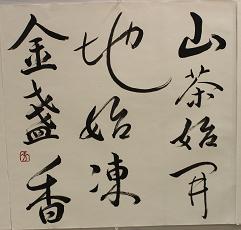 山茶始開
地始凍
金盞香